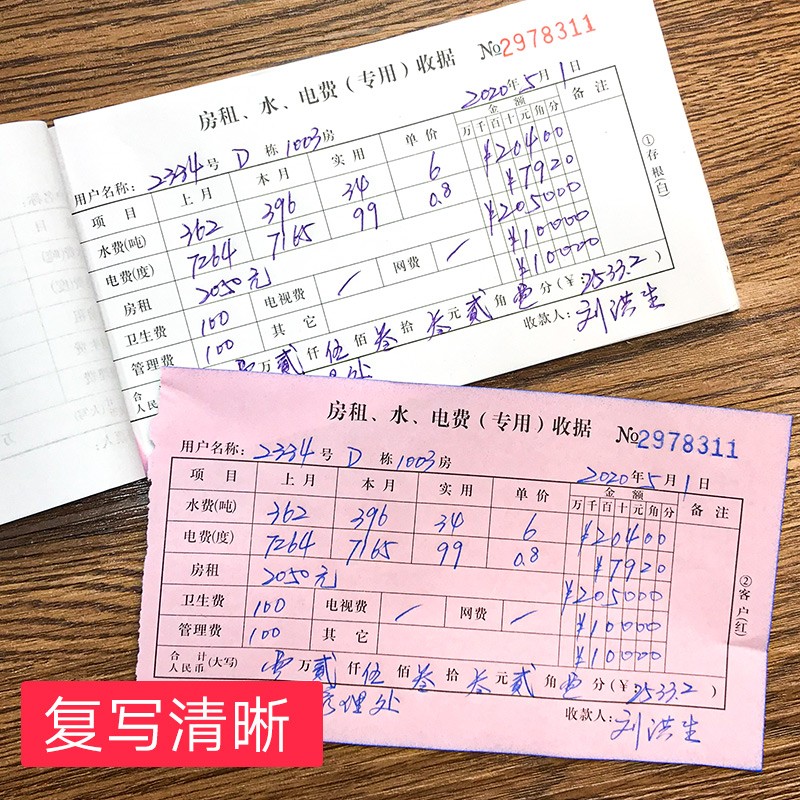 房租、水、电费(专用)收据 №2978311
2020年5月1日
用户名称:2334号 D 栋 1003房
项目 上月 本月 实用 单价 金额 备注
万千百十元角分
水费(吨) 362 396 34 6 ¥20400
电费(度) 7264 7165 99 0.8 ¥7920
房租 2050元 ¥205000
卫生费 100 电视费 / 网费 / ¥10000
管理费 100 其它 ¥10000
合计人民币(大写) 零万贰仟伍佰叁拾叁元贰角零分(¥:2533.2)
收款人:刘洪生
①存根(白)
房租、水、电费(专用)收据 №2978311
用户名称:2334号 D 栋 1003房 2020年5月1日
项目 上月 本月 实用 单价 金额 备注
万千百十元角分
水费(吨) 362 396 34 6 ¥20400
电费(度) 7264 7165 99 0.8 ¥7920
房租 2050元 ¥205000
卫生费 100 电视费 / 网费 / ¥10000
管理费 100 其它 ¥10000
合计人民币(大写) 零万贰仟伍佰叁拾叁元贰角零分(¥:2533.2)
管理处 收款人:刘洪生
②客户(红)
复写清晰